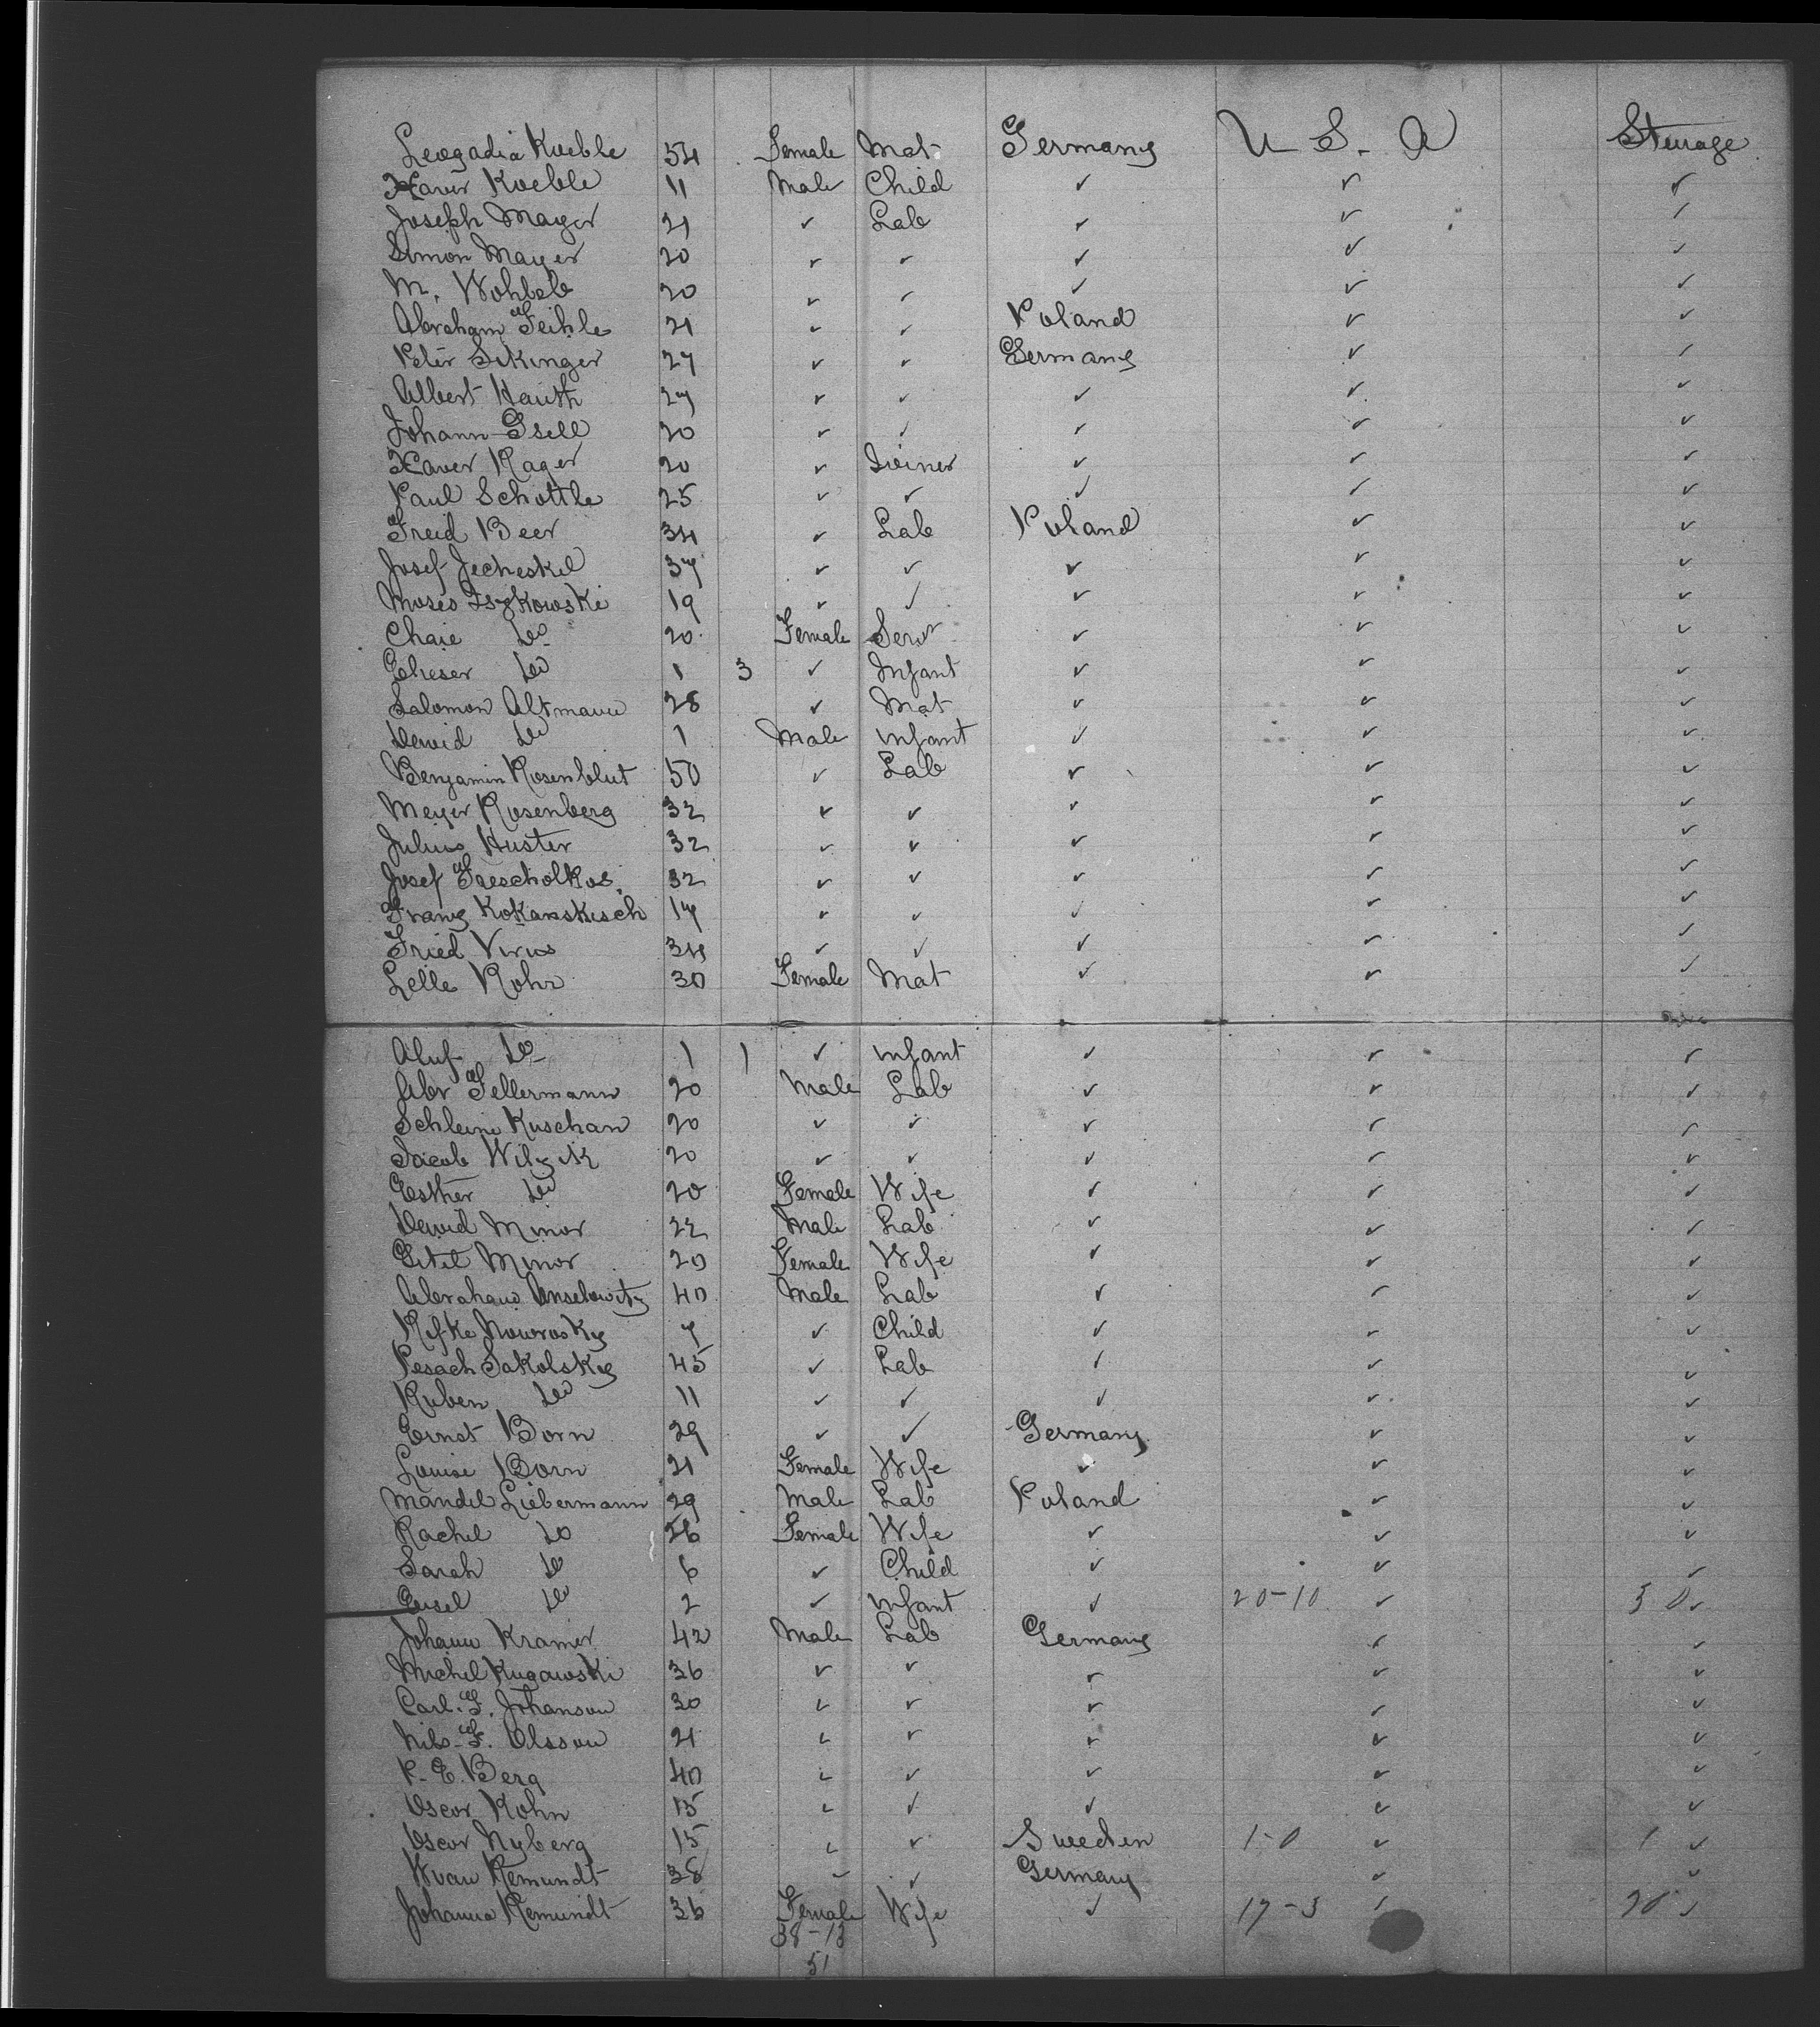 Leogadia Kueble 54 Female Mat Germany U S. A Steerage
Xaver Kueble 11 Male Child ✓ ✓ ✓
Joseph Mayer 21 ✓ Lab ✓ ✓ ✓
Simon Mayer 20 ✓ ✓ ✓ ✓ ✓
M. Wohlbeb 20 ✓ ✓ ✓ ✓ ✓
Abraham Feihle 21 ✓ ✓ Poland ✓ ✓
Peter Sikinger 27 ✓ ✓ Germany ✓ ✓
Albert Hauth 27 ✓ ✓ ✓ ✓ ✓
Johann Gsell 20 ✓ ✓ ✓ ✓ ✓
Xaver Rager 20 ✓ Joiner ✓ ✓ ✓
Paul Schottle 25 ✓ ✓ ✓ ✓ ✓
Freid Beer 34 ✓ Lab Poland ✓ ✓
Josef Jecheskel 37 ✓ ✓ ✓ ✓ ✓
Moses Iszkowski 19 ✓ ✓ ✓ ✓ ✓
Chaie Do 20 Female Servt ✓ ✓ ✓
Elieser Do 1 3 ✓ Infant ✓ ✓ ✓
Salomon Altmann 28 ✓ Mat ✓ ✓ ✓
David Do 1 Male Infant ✓ ✓ ✓
Benjamin Rosenblut 50 ✓ Lab ✓ ✓ ✓
Meyer Rosenberg 32 ✓ ✓ ✓ ✓ ✓
Julius Huster 32 ✓ ✓ ✓ ✓ ✓
Josef 32 ✓ ✓ ✓ ✓ ✓
Franz Kokanskisch 17 ✓ ✓ ✓ ✓ ✓
Fried Virus 34 ✓ ✓ ✓ ✓ ✓
Lelle Rohr 30 Female Mat ✓ ✓ ✓
Aluf Do 1 1 ✓ Infant ✓ ✓ ✓
Abr Fellermann 20 Male Lab ✓ ✓ ✓
Schleime Kuschan 20 ✓ ✓ ✓ ✓ ✓
Jacob Wilzik 20 ✓ ✓ ✓ ✓ ✓
Esther Do 20 Female Wife ✓ ✓ ✓
David Minor 22 Male Lab ✓ ✓ ✓
Gitel Minor 20 Female Wife ✓ ✓ ✓
Abraham Anselowitz 40 Male Lab ✓ ✓ ✓
Rifke Nowrosky 7 ✓ Child ✓ ✓ ✓
Pesach Sakolsky 45 ✓ Lab ✓ ✓ ✓
Ruben Do 11 ✓ ✓ ✓ ✓ ✓
Ernst Born 29 ✓ ✓ Germany ✓ ✓
Louise Born 21 Female Wife ✓ ✓ ✓
Mandel Liebermann 29 Male Lab Poland ✓ ✓
Rachel Do 26 Female Wife ✓ ✓ ✓
Sarah Do 6 ✓ Child ✓ ✓ ✓
Eisel Do 2 ✓ Infant ✓ 20-10 ✓ 30 ✓
Johann Kramer 42 Male Lab Germany ✓ ✓
Michel Kugawski 36 ✓ ✓ ✓ ✓ ✓
Carl. F. Johanson 30 ✓ ✓ ✓ ✓ ✓
Nils. F. Olsson 21 ✓ ✓ ✓ ✓ ✓
P. E. Berg 40 ✓ ✓ ✓ ✓ ✓
Oscar Kohn 15 ✓ ✓ ✓ ✓ ✓
Oscar Nyberg 15 ✓ ✓ Sweden 1-0 ✓ 1 ✓
Remundt 38 ✓ ✓ Germany ✓ ✓
Johanna Remundt 36 Female Wife ✓ 17-3 ✓ 20 ✓
38-13
51